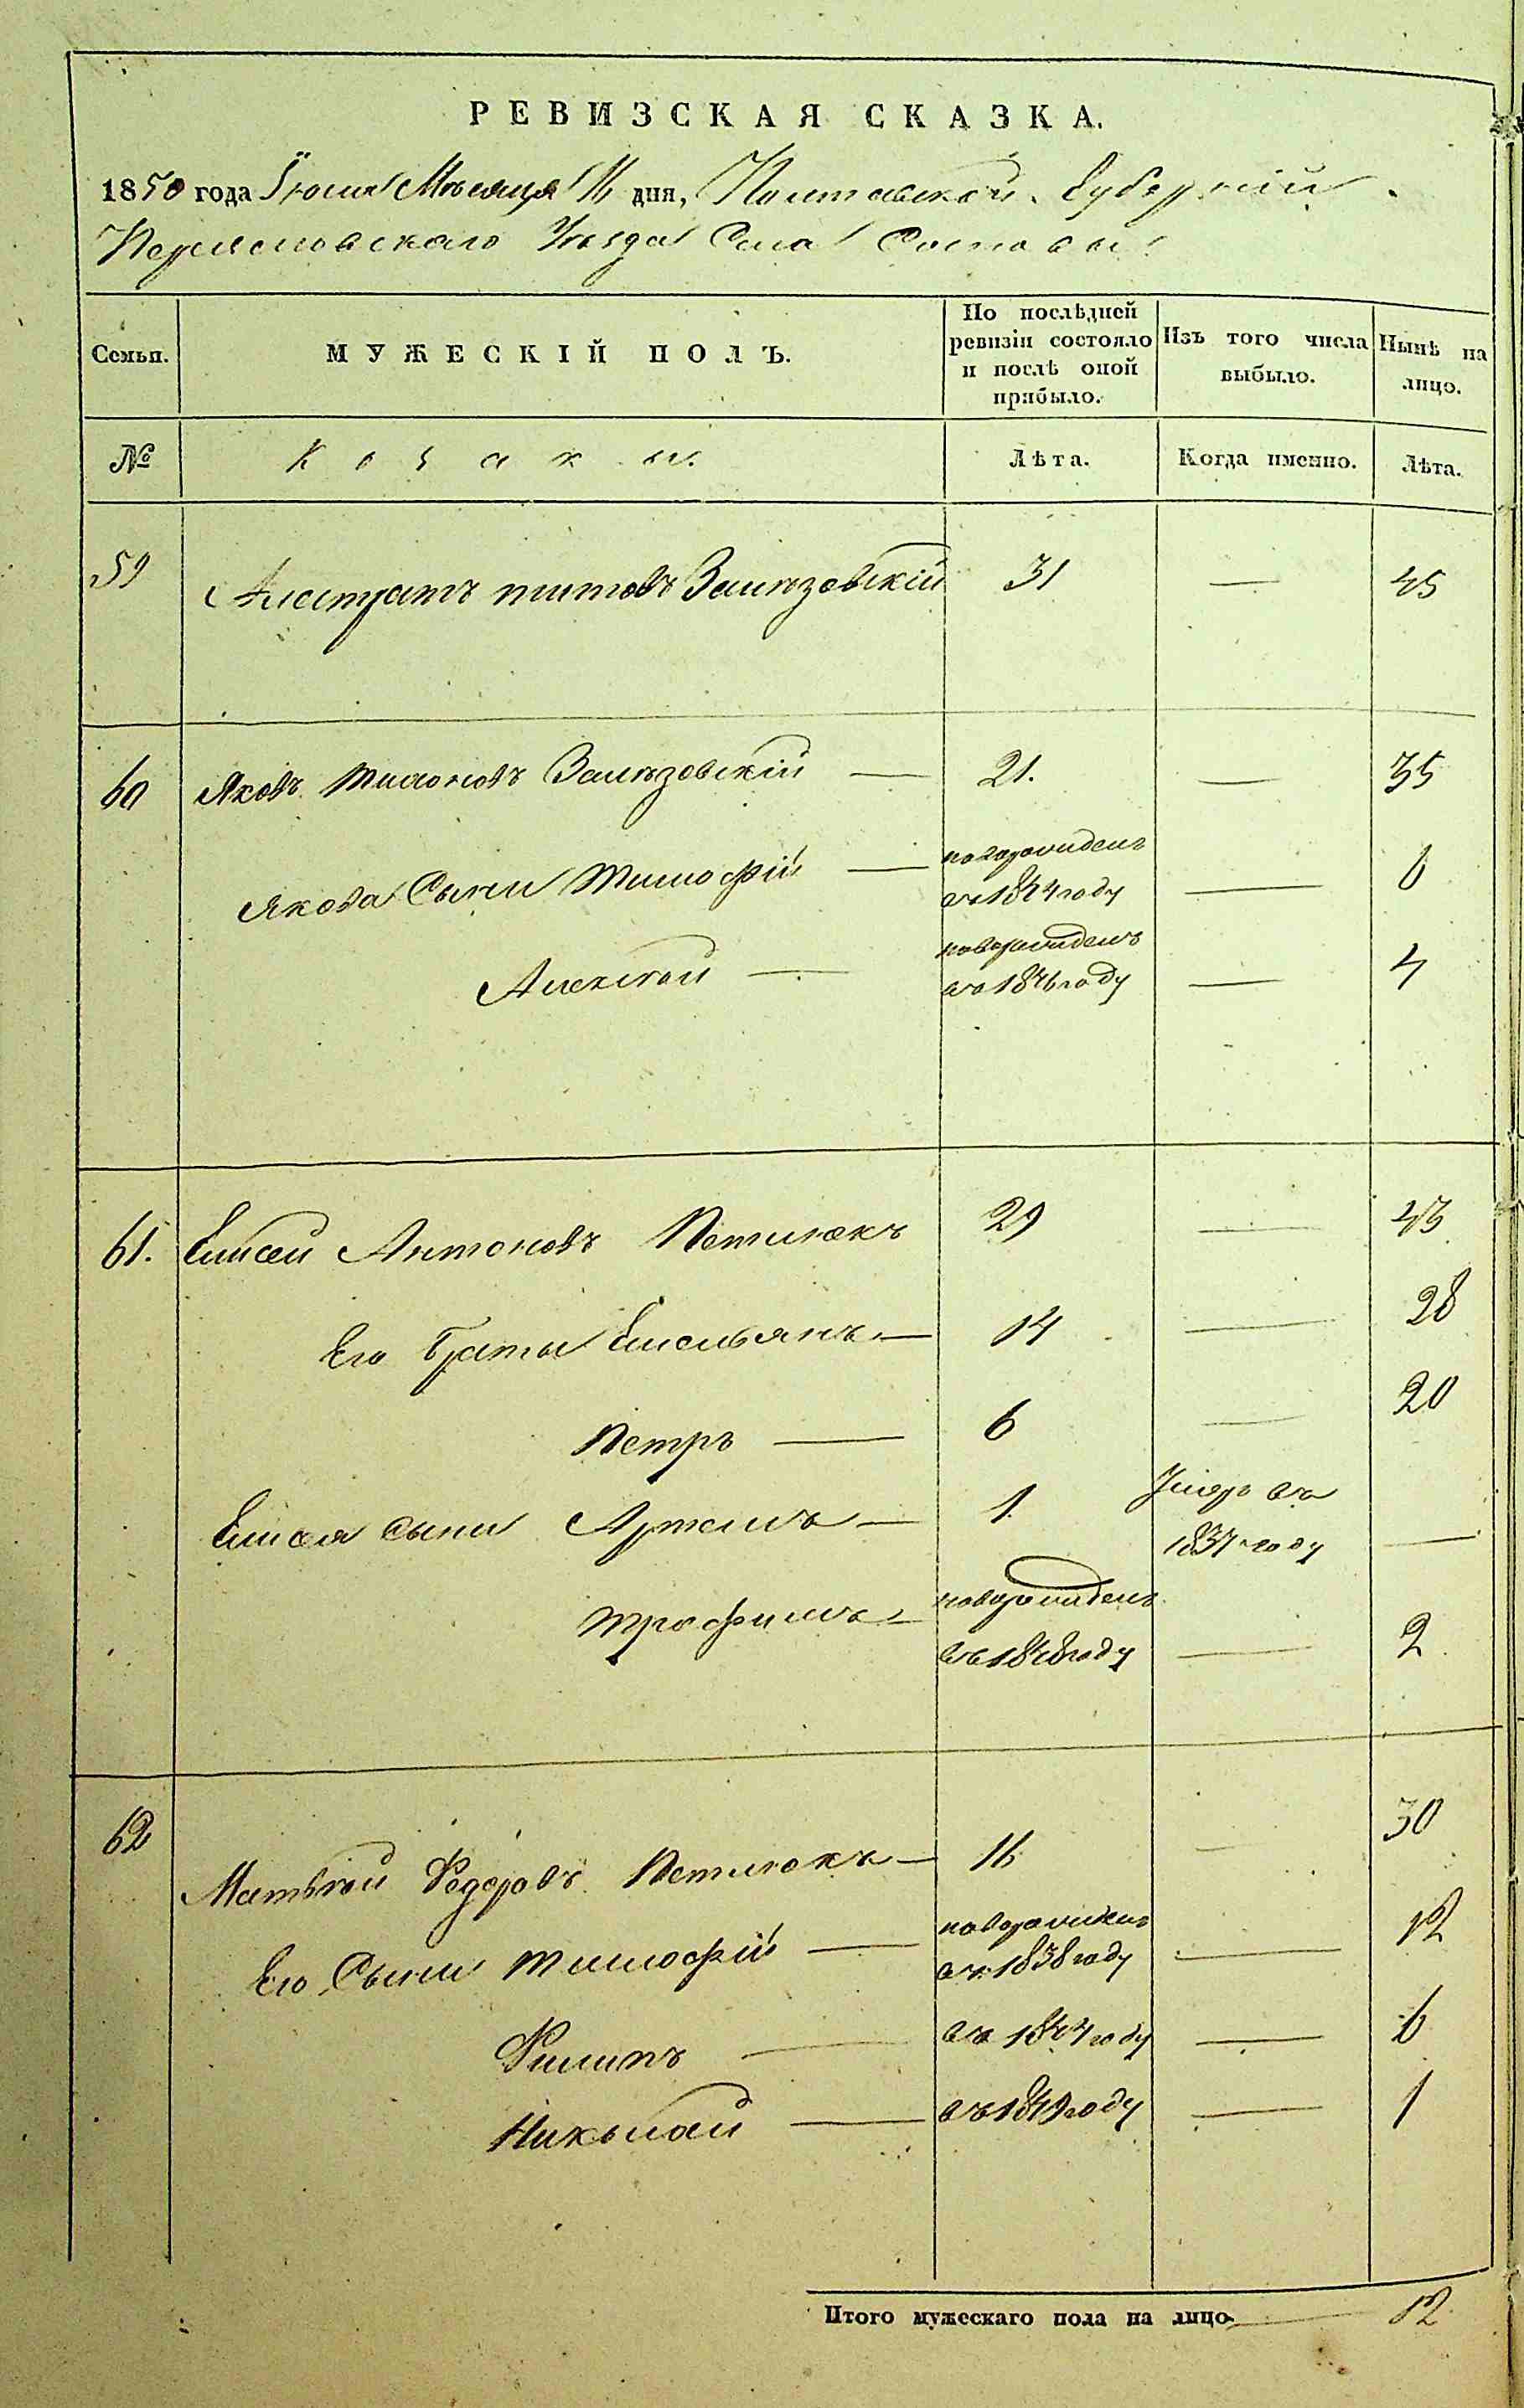 РЕВИЗСКАЯ СКАЗКА.
1850 года Іюля Мѣсяца 16 дня, Полтавской Губерніи
Переясловскаго Уѣзда Села Сосновы
Семьи. МУЖЕСКІЙ ПОЛЪ. По послѣдней ревизіи состояло и послѣ оной прибыло. Изъ того числа выбыло. Нынѣ на лицо.
№ Козаки. Лѣта. Когда именно. Лѣта.
59 Калистратъ Титовъ Залѣзовскій 31 — 45
60 Яковъ Тихоновъ Залѣзовскій — 21. — 35
Якова Сыны Тимофій — новорожденъ въ 1844 году — 6
Алексей — новорожденъ въ 1846 году — 4
61. Елисей Антоновъ Петлюкъ 29 — 43
Его Браты Емельянъ — 14 — 28
Петръ — 6 — 20
Елисея сыны Артемъ — 1. Умеръ въ 1837 году —
Трофимъ — новорожденъ въ 1848 году — 2
62 Матвѣй Федоровъ Петлюкъ — 16 — 30
Его Сыны Тимофій — новорожденъ въ 1838 году — 12
Филипъ — въ 1844 году — 6
Николай — въ 1849 году — 1
Итого мужескаго пола на лицо — 12